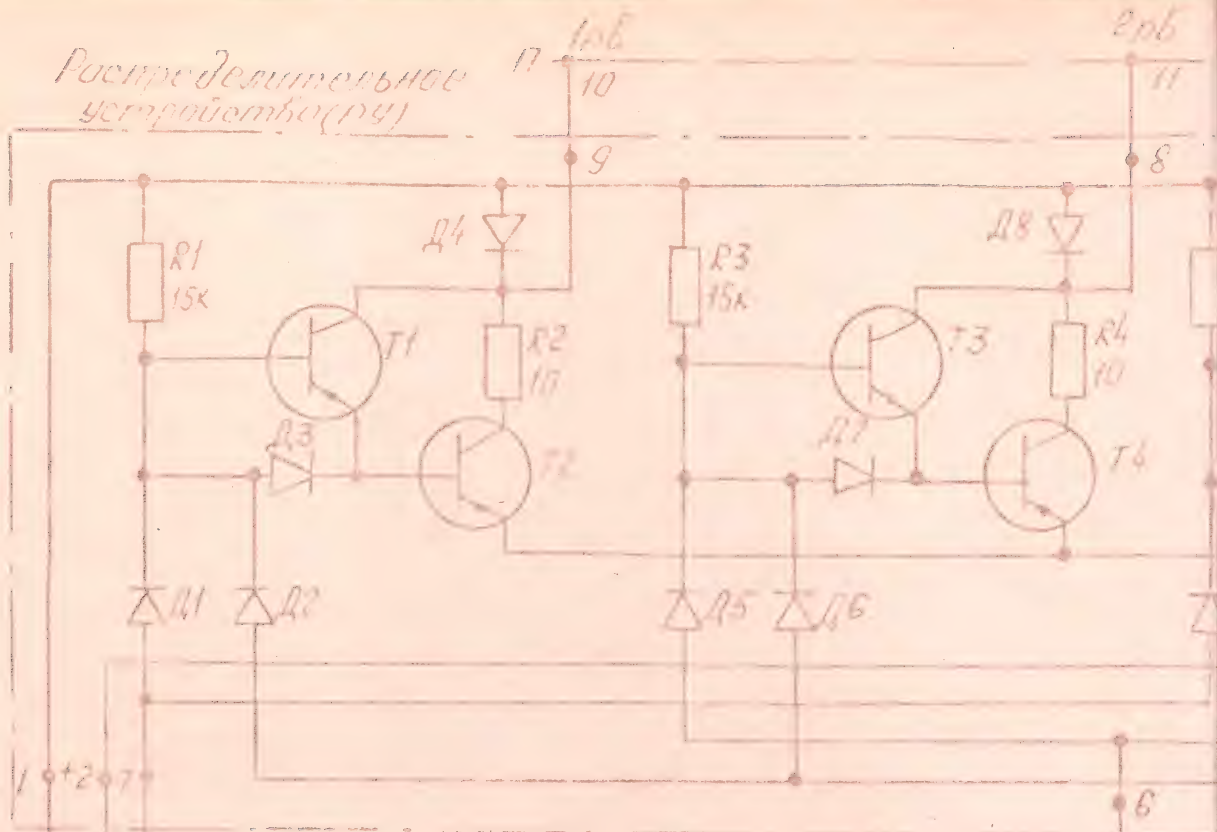 Распределительное
устройство(РУ)
П
1рб
10
2рб
11
9
8
R1
15к
Д4
R3
15к
Д8
T1
R2
10
T3
R4
10
Д3
T2
Д7
T4
Д1
Д2
Д5
Д6
1
+2
7
6